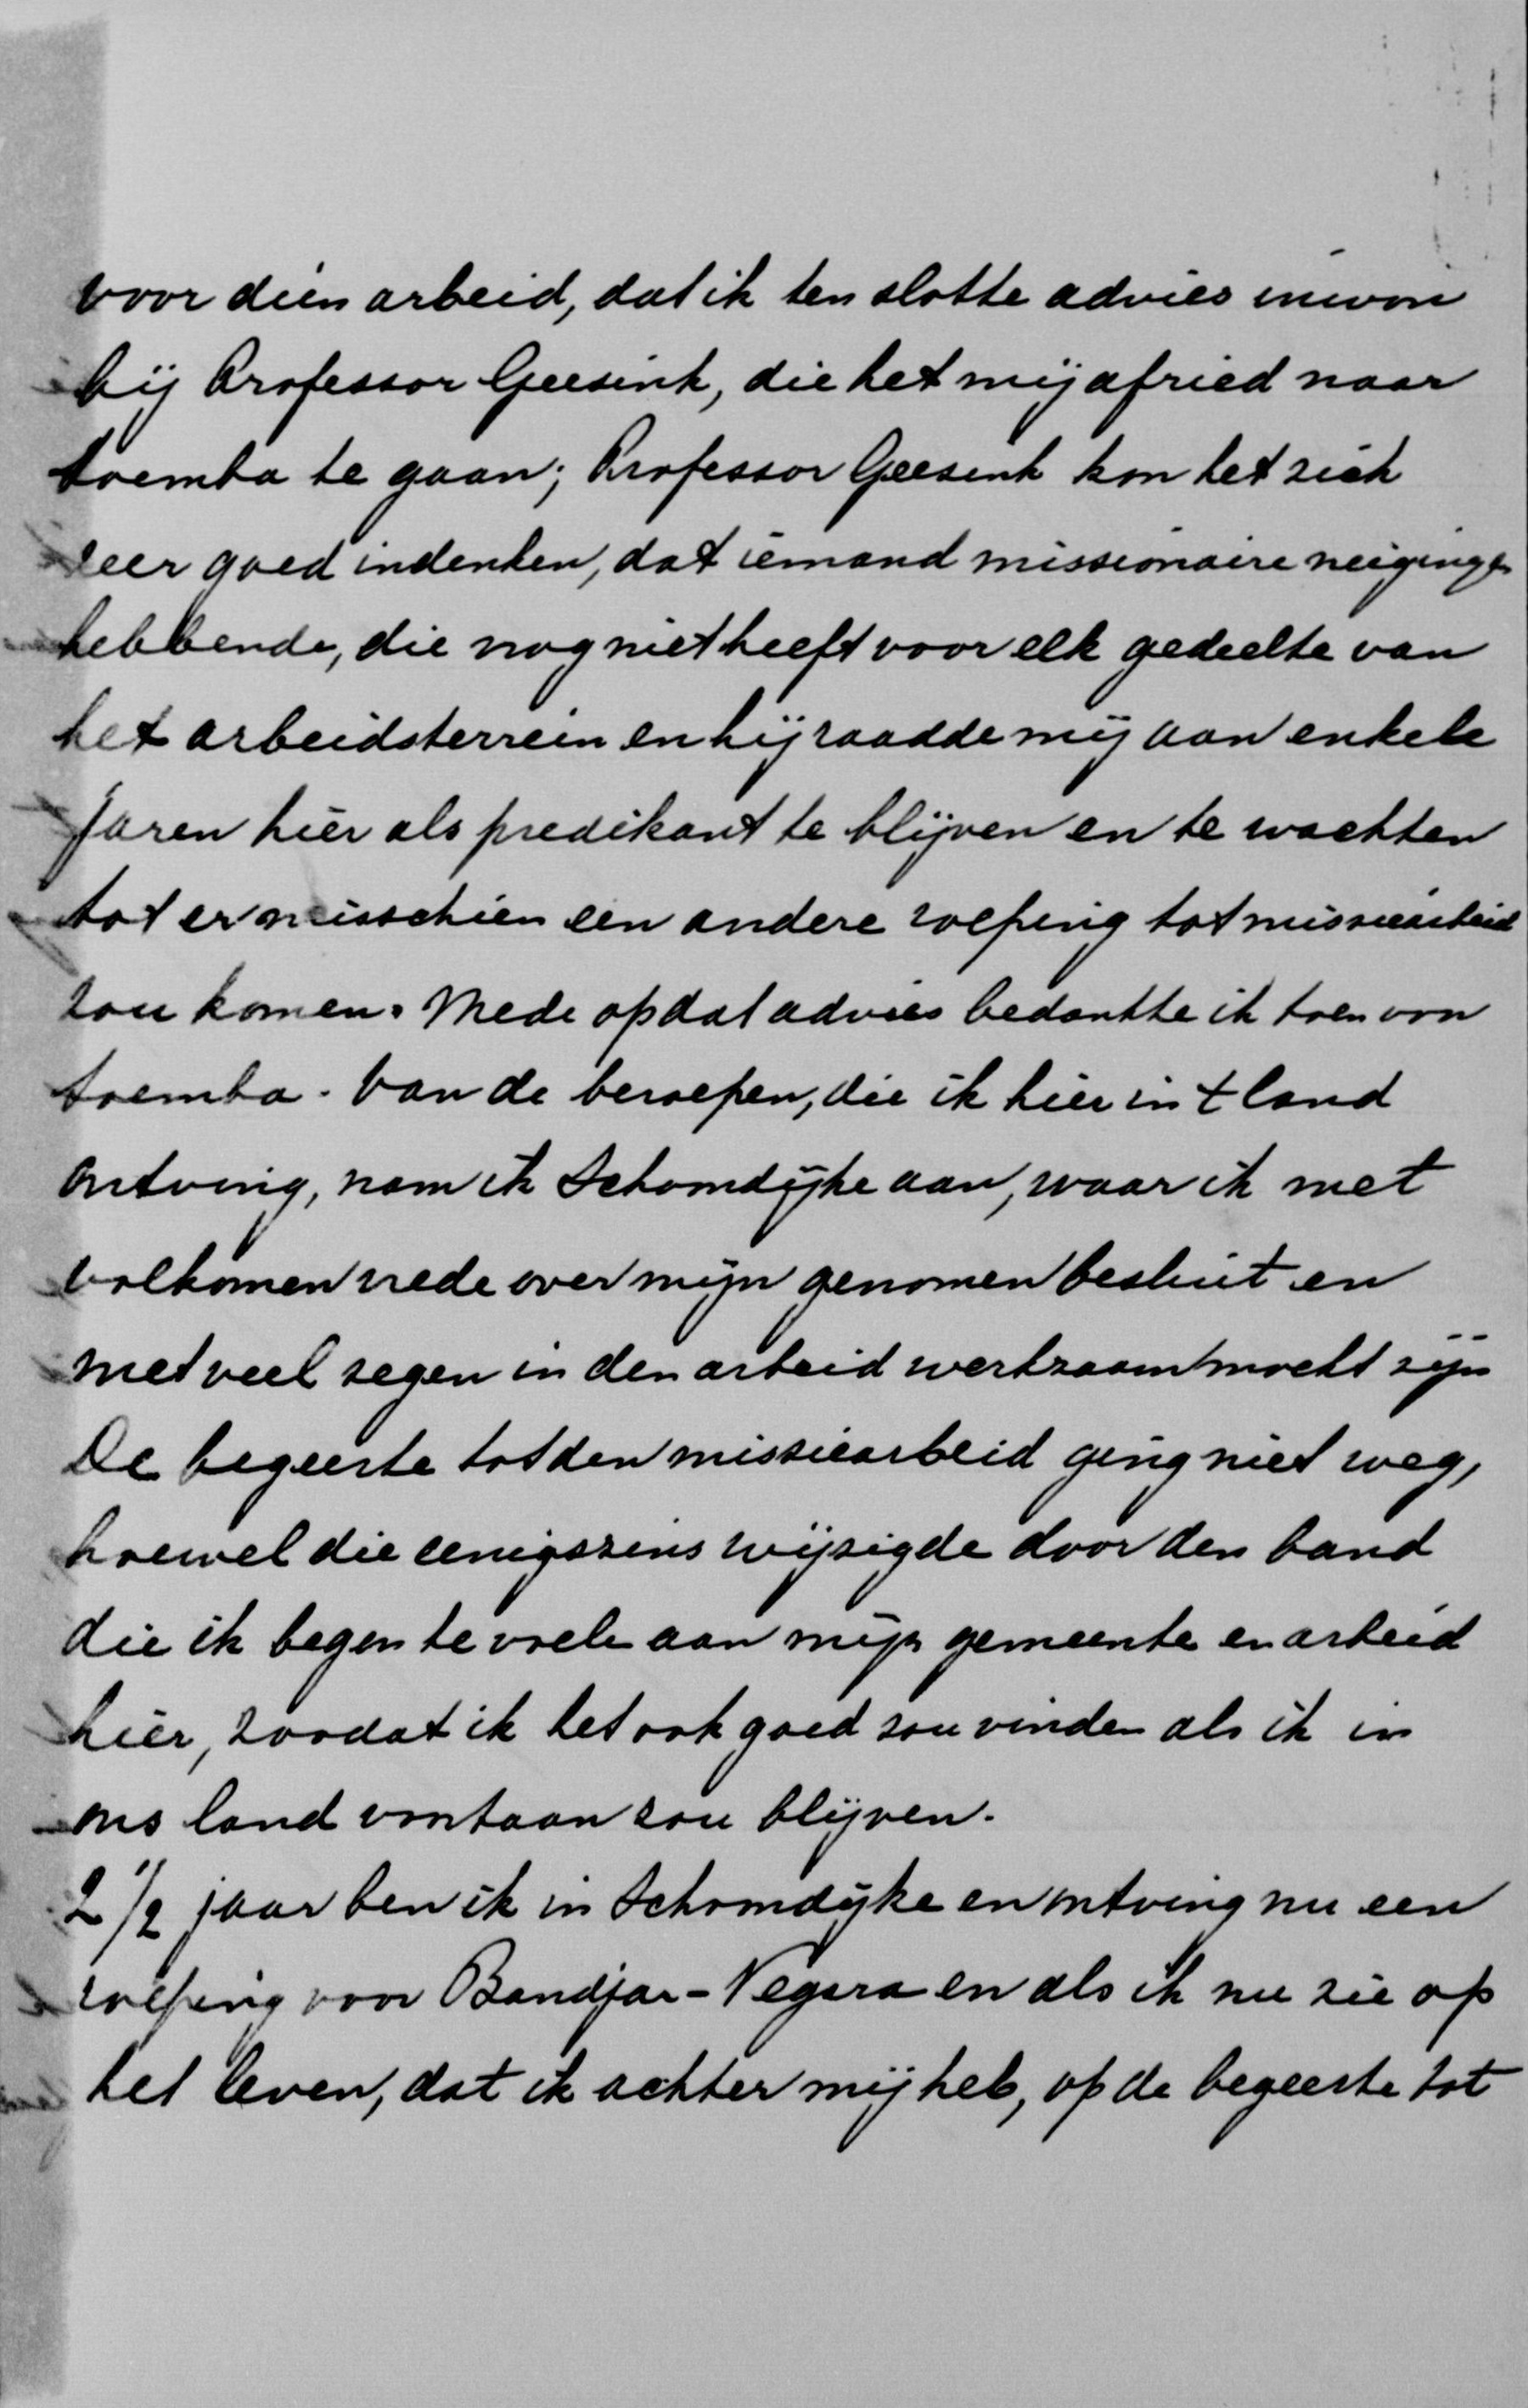 voor dien arbeid, dat ik ten slotte advies inwon
bij Professor Geesink, die het mij afried naar
Soemba te gaan; Professor Geesink kon het zich
zeer goed indenken, dat iemand missionaire neigingen
hebbende, die nog niet heeft voor elk gedeelte van
het arbeidsterrein en hij raadde mij aan enkele
jaren hier als predikant te blijven en te wachten
tot er misschien een andere roeping tot missiearbeid
zou komen. Mede op dat advies bedankte ik toen voor
Soemba. Van de beroepen, die ik hier in 't land
ontving, nam ik Schoondijke aan, waar ik met
volkomen vrede over mijn genomen besluit en
met veel zegen in den arbeid werkzaam mocht zijn
De begeerte tot den missiearbeid ging niet weg,
hoewel die eenigszins wijzigde door den band
die ik begon te voele aan mijn gemeente en arbeid
hier, zoodat ik het ook goed zou vinden als ik in
ons land voortaan zou blijven.
2 1/2 jaar ben ik in Schoondijke en ontving nu een
roeping voor Bandjar-Negara en als ik nu zie op
het leven, dat ik achter mij heb, op de begeerte tot